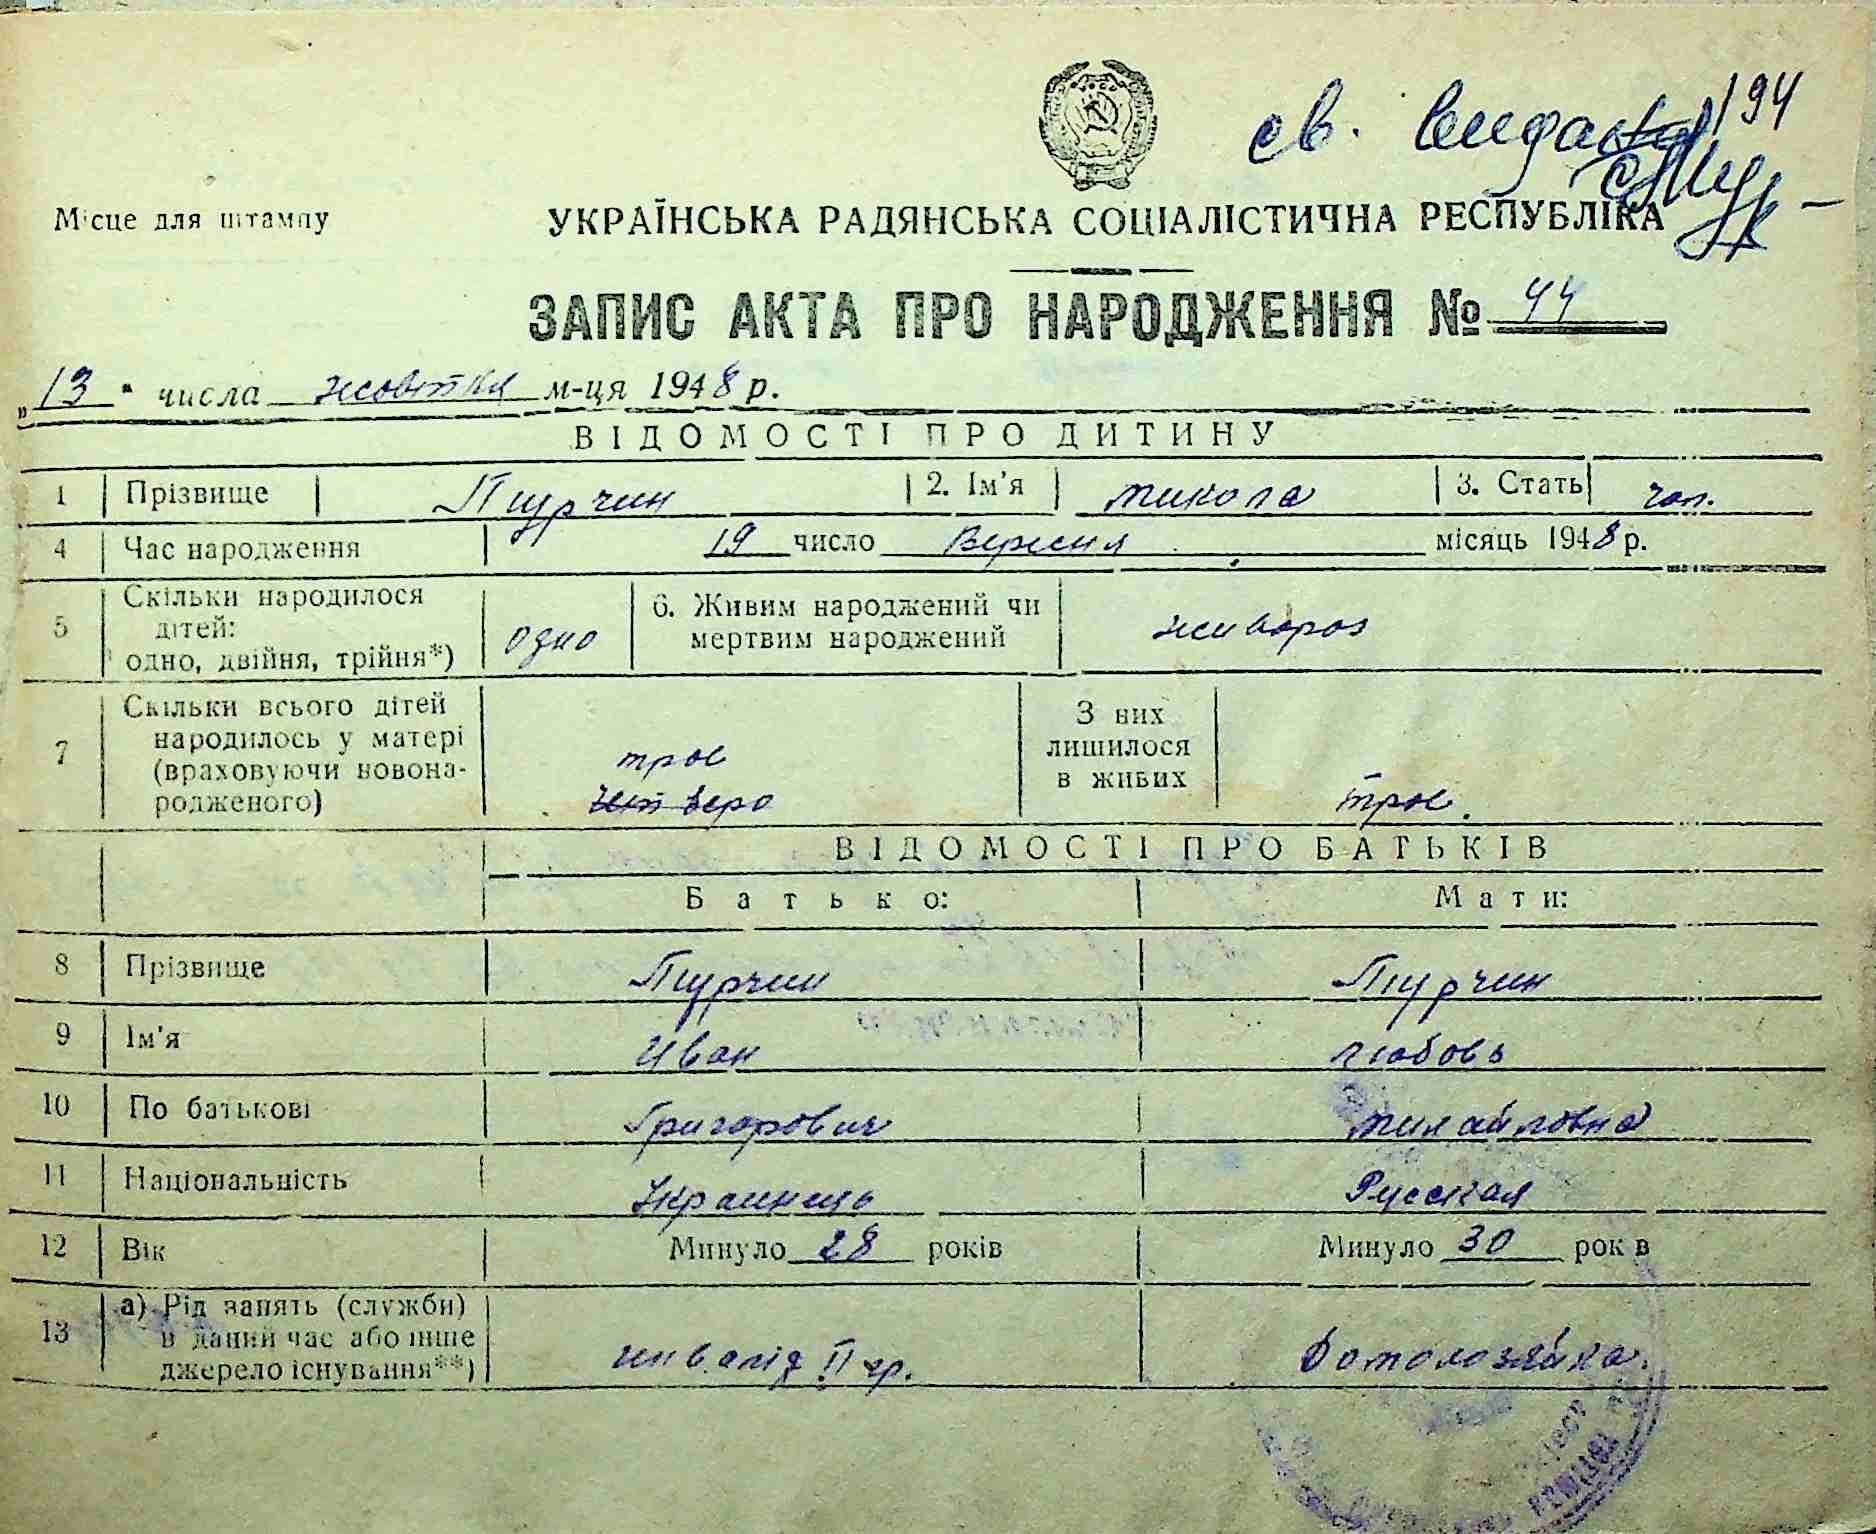 194
св. видано
Місце для штампу
УКРАЇНСЬКА РАДЯНСЬКА СОЦІАЛІСТИЧНА РЕСПУБЛІКА
ЗАПИС АКТА ПРО НАРОДЖЕННЯ № 44
„13" числа жовтня м-ця 1948 р.
ВІДОМОСТІ ПРО ДИТИНУ
1 Прізвище Турчин 2. Ім'я Микола 3. Стать чол.
4 Час народження 19 число Вересня місяць 1948 р.
5 Скільки народилося дітей: одно, двійня, трійня*) одно 6. Живим народжений чи мертвим народжений живороз
7 Скільки всього дітей народилось у матері (враховуючи новонародженого) трое четверо З них лишилося в живих трое.
ВІДОМОСТІ ПРО БАТЬКІВ
Батько: Мати:
8 Прізвище Турчин Турчин
9 Ім'я Иван Любовь
10 По батькові Григорович Михайловна
11 Національність Украинець Русская
12 Вік Минуло 28 років Минуло 30 років
13 а) Рід занять (служби) в даний час або інше джерело існування**) инвалід II гр. Домохозяйка.